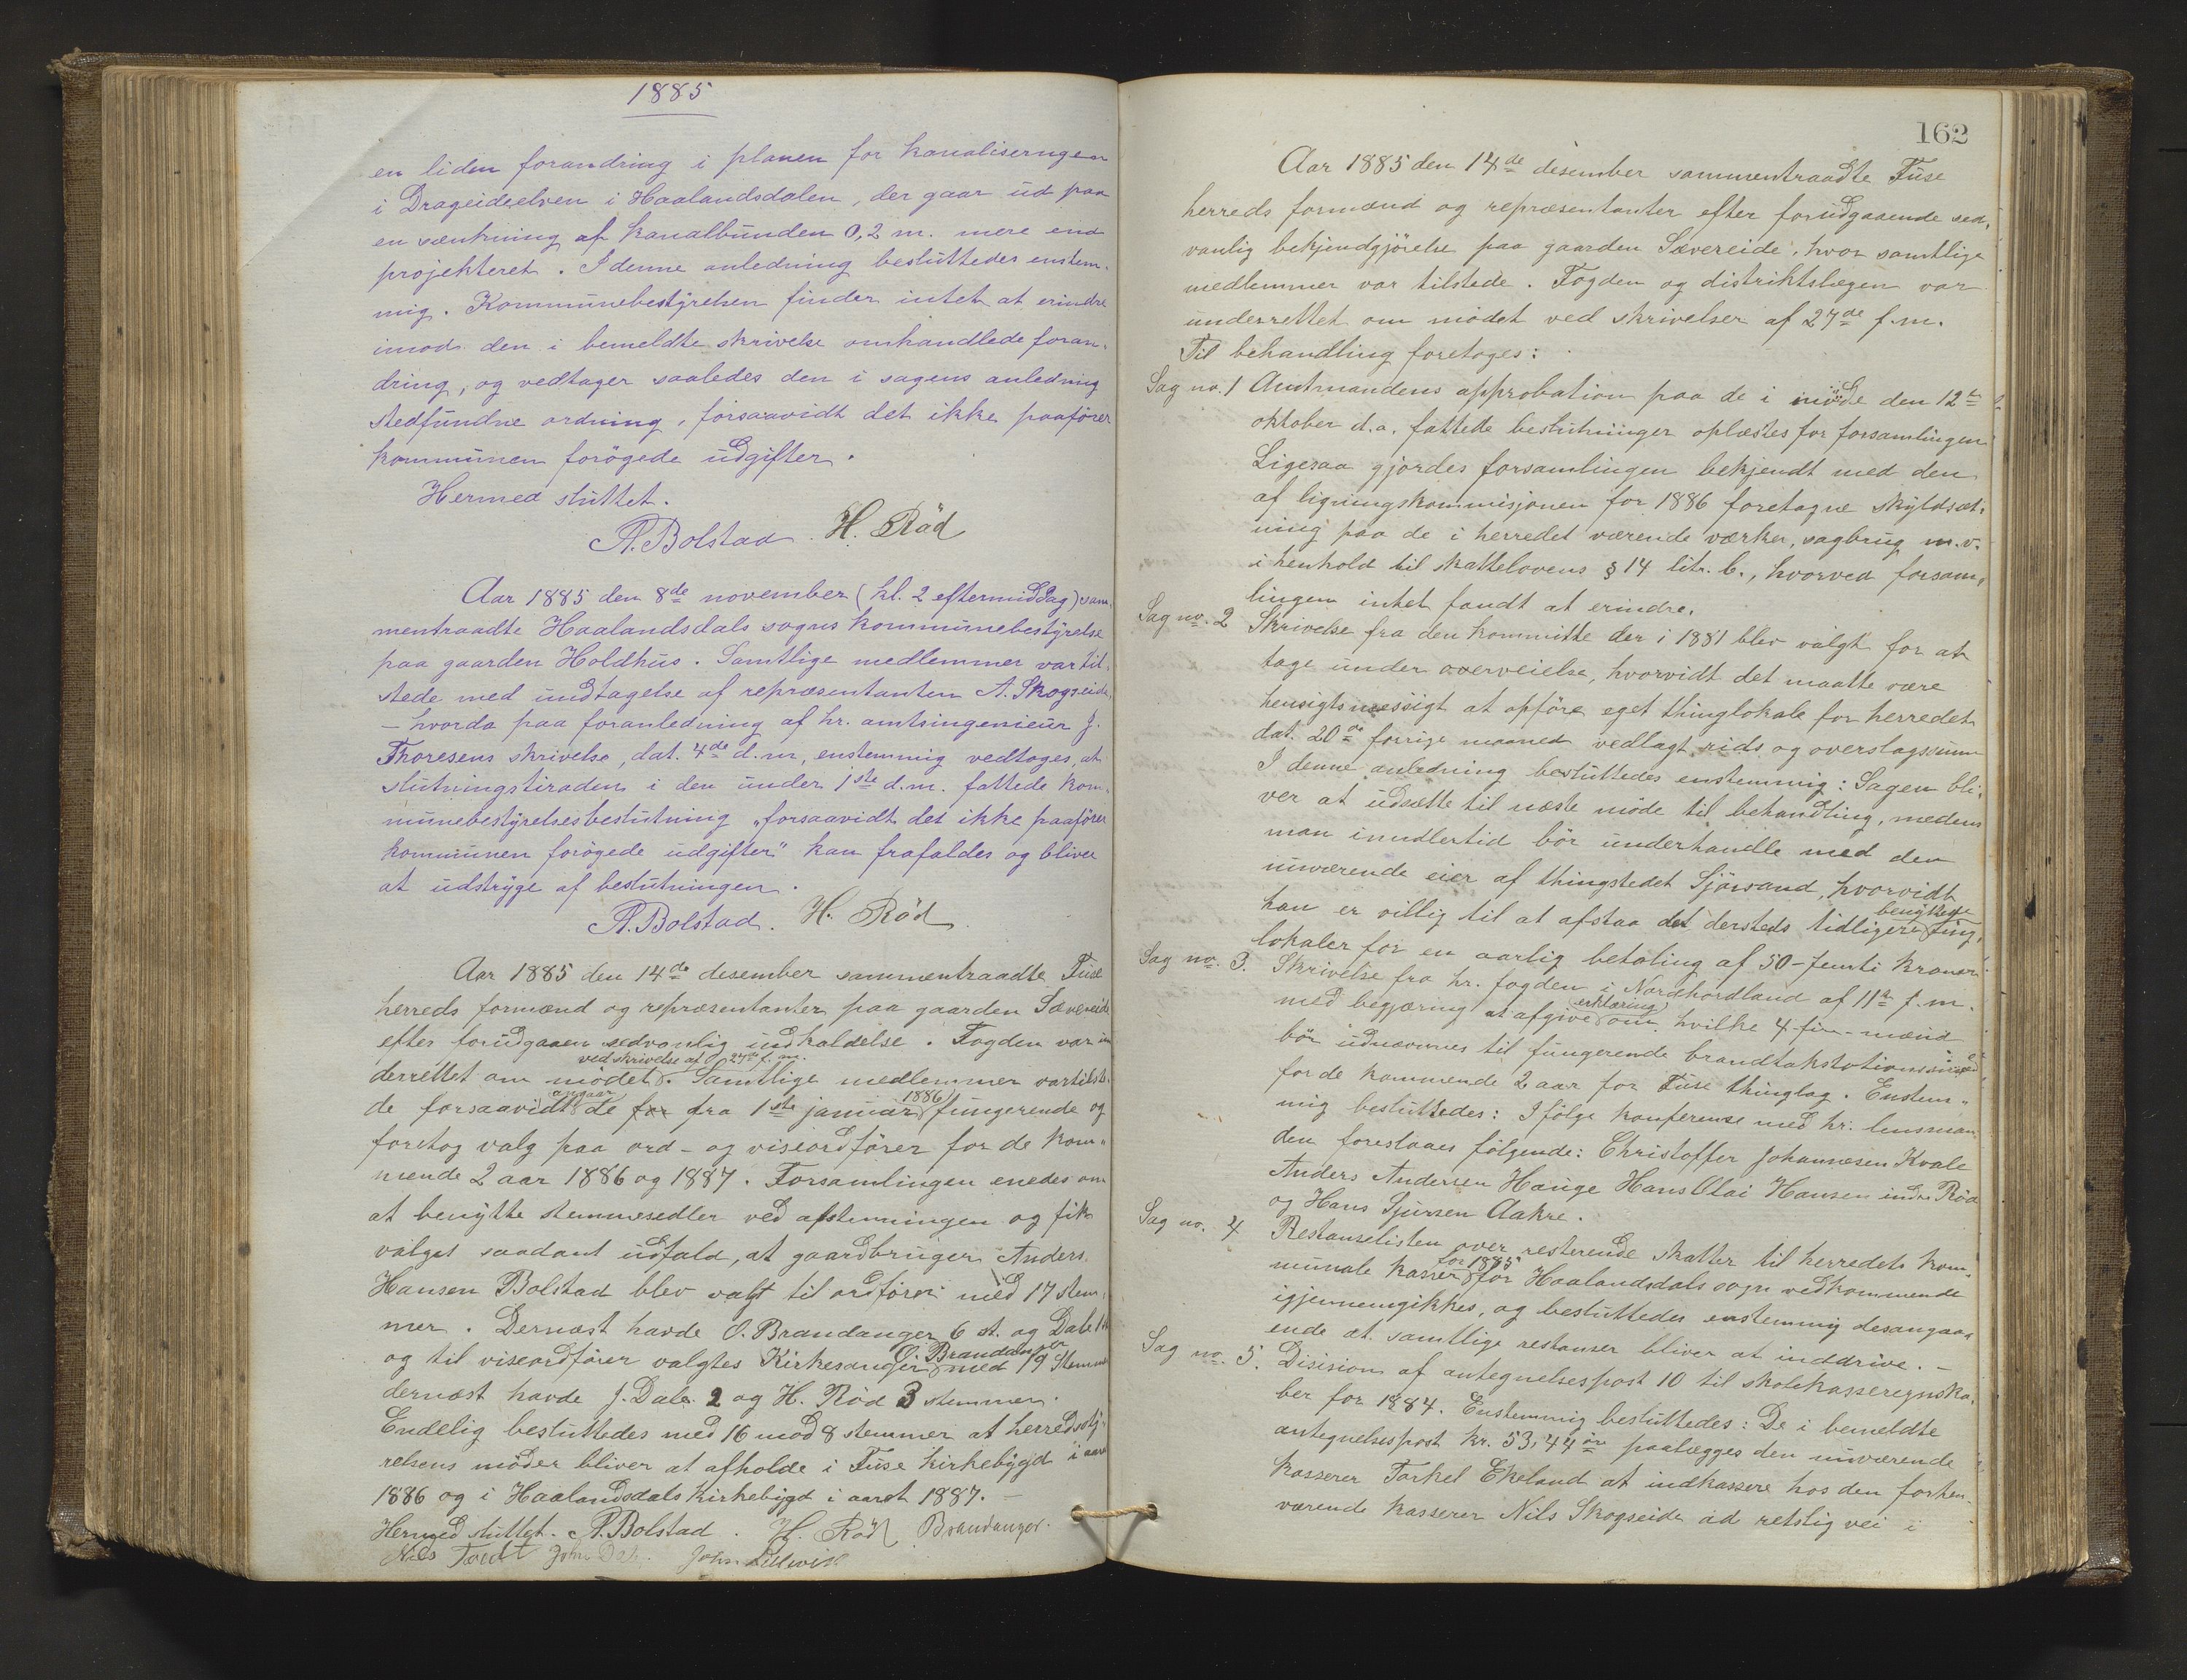 1885
en liden forandring i planen for kanaliseringen
i Drageideelven i Haalandsdalen, der gaar ud paa
en sænkning af kanalbunden 0,2 m. mere end
projekteret. I denne anledning besluttedes enstem-
mig. Kommunebestyrelsen finder intet at erindre
imod den i bemeldte skrivelse omhandlede foran-
dring, og vedtager saaledes den i sagens anledning
stedfundne ordning, forsaavidt det ikke paaförer
kommunen forögede udgifter.
Hermed sluttet.
A. Bolstad H. Röd
Aar 1885 den 8de november (kl. 2 eftermiddag) sam-
mentraadte Haalandsdals sogns kommunebestyrelse
paa gaarden Holdhus. Samtlige medlemmer var til-
stede med undtagelse af repræsentanten A. Skogseide,
– hvorda paa foranledning af hr. amtsingeniør J.
Thoresens skrivelse, dat. 4de d.m, enstemmig vedtoges, at
slutningstiraden i den under 1ste d.m. fattede kom-
munebestyrelsesbeslutning "forsaavidt det ikke paaförer
kommunen forögede udgifter" kan frafaldes og bliver
at udstryge af beslutningen.
A. Bolstad. H. Röd
Aar 1885 den 14de desember sammentraadte Fuse
herreds formænd og repræsentanter paa gaarden Sævereide
efter forudgaaen sedvanlig indkaldelse. Fogden var un
ved skrivelse af 27de f.m.
derrettet om mödet. Samtlige medlemmer var tilste-
angaar 1886
de forsaavidt de for fra 1ste januar fungerende og
foretog valg paa ord- og viseordförer for de kom-
mende 2 aar 1886 og 1887. Forsamlingen enedes om
at benytte stemmesedler ved afstemningen og fik
valget saadant udfald, at gaardbruger Anders
Hansen Bolstad blev valgt til ordförer med 17 stem-
mer. Dernæst havde O. Brandanger 6 st. og Dale 1 st
O. Brandanger
og til viseordförer valgtes Kirkesanger med 19 Stemmer
dernæst havde J. Dale 2 og H. Röd 3 stemmer.
Endelig besluttedes med 16 mod 8 stemmer at herredssty-
relsens möder bliver at afholde i Fuse kirkebygd i aaret
1886 og i Haalandsdals Kirkebygd i aaret 1887. –
Hermed sluttet. A. Bolstad. H. Röd Brandanger.
Nils John Dale. John
162
Aar 1885 den 14de desember sammentraadte Fuse
herreds formænd og repræsentanter efter forudgaaende sed-
vanlig bekjendgjörelse paa gaarden Sævereide, hvor samtlige
medlemmer var tilstede. Fogden og distriktslægen var
underrettet om mödet ved skrivelser af 27de f.m.
Til behandling foretoges:
Sag no. 1 Amtmandens approbation paa de i möde den 12te
oktober d.a. fattede beslutninger oplæstes for forsamlingen
Ligesaa gjordes forsamlingen bekjendt med den
af ligningskommisjonen for 1886 foretagne skyldsæt-
ning paa de i herredet værende værker, sagbrug m.v.
i henhold til skattelovens § 14 litr. b., hvorved forsam-
lingen intet fandt at erindre.
Sag no. 2 Skrivelse fra den kommitte der i 1881 blev valgt for at
tage under overveielse, hvorvidt det maatte være
hensigtsmessigt at opföre eget thinglokale for herredet
dat. 20de forrige maaned vedlagt rids og overslagssum
I denne anledning besluttedes enstemmig: Sagen bli-
ver at udsætte til næste möde til behandling, medens
man imidlertid bör underhandle med den
nuværende eier af thingstedet Sjösand, hvorvidt
benyttede
han er villig til at afstaa det dersteds tidligere ting-
lokaler for en aarlig betaling af 50 - femti kroner
Sag no. 3. Skrivelse fra hr. fogden i Nordhordland af 11te f.m.
erklæring
med begjæring at afgive om hvilke 4 - fire - mænd
bör udnævnes til fungerende brandtakstationsmænd
for de kommende 2 aar for Fuse thinglag. Enstem-
mig besluttedes: I fölge konferense med hr. lensman-
den forestaaes fölgende: Christoffer Johannesen Kvale
Anders Andersen Hauge Hans Olai Hansen indre Röd
og Hans Sjursen Aakre.
Sag no. 4 Restanselisten over resterende skatter til herredets kom-
for 1885
munale kasser for Haalandsdals sogn vedkommende
igjennemgikkes, og besluttedes enstemmig desangaa-
ende at samtlige restanser bliver at inddrive. –
Sag no. 5. Disision af antegnelsespost 10 til skolekasseregnska-
ber for 1884. Enstemmig besluttedes: De i bemeldte
antegnelsespost kr. 53,44 öre paalægges den nuværende
kasserer Torkel Ekeland at indkassere hos den forhen-
værende kasserer Nils Skogseide ad retslig vei i